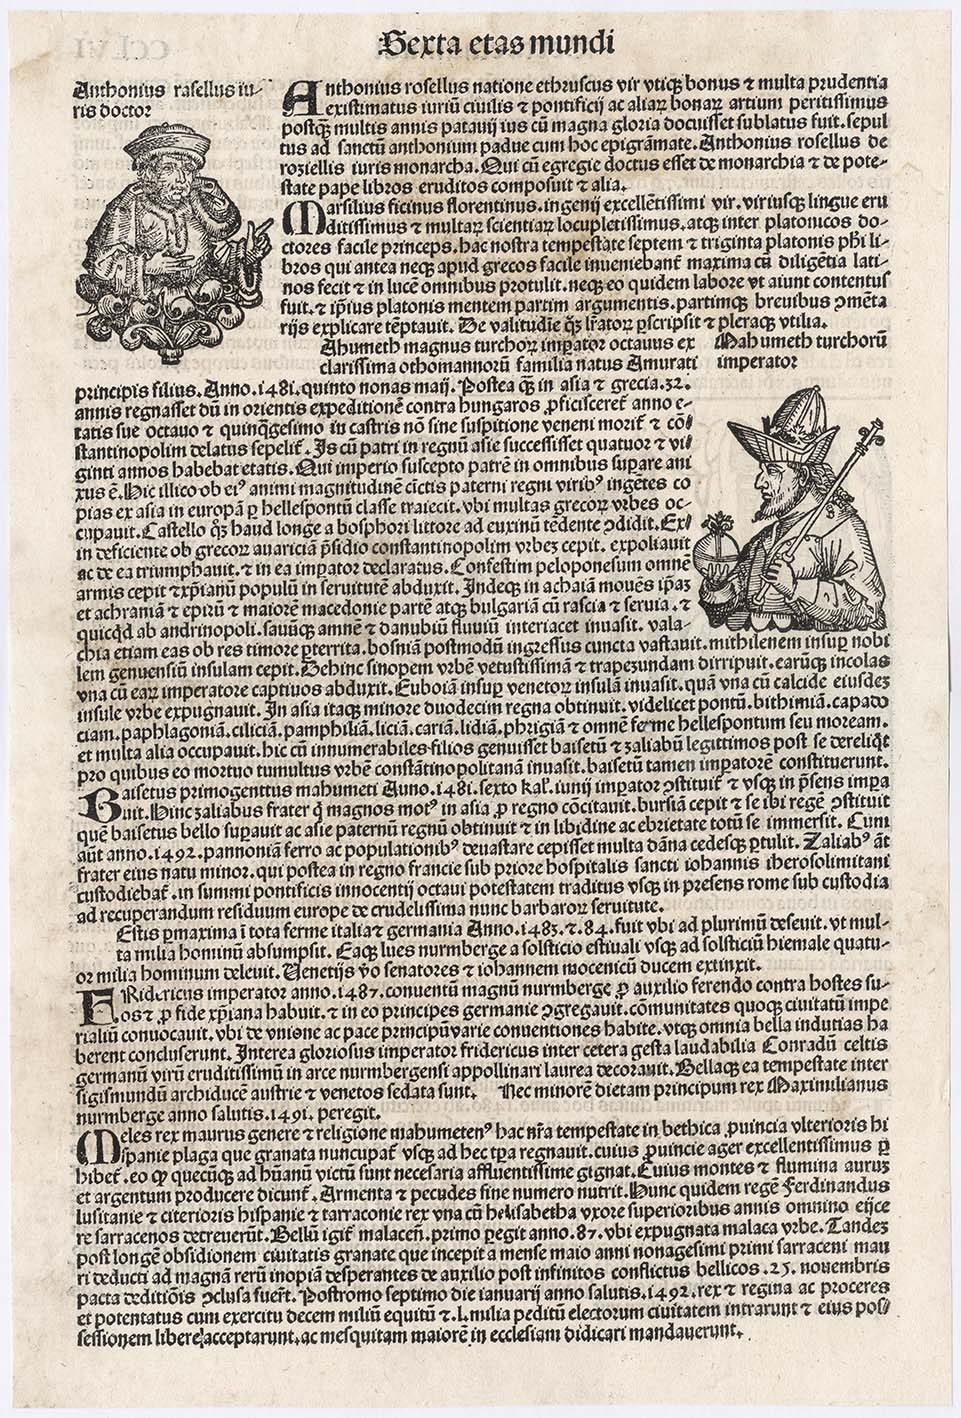 Sexta etas mundi
Anthonius rasellus iu-
ris doctor
Anthonius rosellus natione ethruscus vir vtiqꝫ bonus ⁊ multa prudentia
existimatus iuriũ ciuilis ⁊ pontificij ac aliaꝝ bonaꝝ artium peritissimus
postqꝫ multis annis patauij ius cũ magna gloria docuisset sublatus fuit. sepul
tus ad sanctũ anthonium padue cum hoc epigrãmate. Anthonius rosellus de
roziellis iuris monarcha. Qui cũ egregie doctus esset de monarchia ⁊ de pote-
state pape libros eruditos composuit ⁊ alia.
Marsilius ficinus florentinus. ingenij excellẽtissimi vir. vtriusqꝫ lingue eru
ditissimus ⁊ multaꝝ scientiaꝝ locupletissimus. atqꝫ inter platonicos do-
ctores facile princeps. hac nostra tempestate septem ⁊ triginta platonis phi li-
bros qui antea neqꝫ apud grecos facile inueniebant̃ maxima cũ diligẽtia lati-
nos fecit ⁊ in lucẽ omnibus protulit. neqꝫ eo quidem labore vt aiunt contentus
fuit. ⁊ ip̃ius platonis mentem partim argumentis. partimqꝫ breuibus ꝯmẽta
rijs explicare tẽptauit. De valitudĩe qꝫ lr̃atoꝝ ꝑscripsit ⁊ pleraqꝫ vtilia.
Ahumeth magnus turchoꝝ imꝑator octauus ex
clarissima othomannoꝝ familia natus Amurati
Mahumeth turchorũ
imperator
principis filius. Anno. 1481. quinto nonas maij. Postea qꝫ in asia ⁊ grecia. 32.
annis regnasset dũ in orientis expeditionẽ contra hungaros ꝓficisceret̃ anno e-
tatis sue octauo ⁊ quinqꝗgesimo in castris nõ sine suspitione veneni morit̃ ⁊ cõ-
stantinopolim delatus sepelit̃. Is cũ patri in regnũ asie successisset quatuor ⁊ vi-
ginti annos habebat etatis. Qui imperio suscepto patrẽ in omnibus suꝑare ani
xus ẽ. Hic illico ob eiꝰ animi magnitudinẽ cũctis paterni regni viribꝰ ingẽtes co
pias ex asia in europã ꝑ hellespontũ classe traiecit. vbi multas grecoꝝ vrbes oc-
cupauit. Castello qꝫ haud longe a bosphori littore ad euxinũ tẽdente ꝯdidit. Ex-
in deficiente ob grecoꝝ auariciã p̃sidio constantinopolim vrbeꝫ cepit. expoliauit
ac de ea triumphauit. ⁊ in ea imꝑator declaratus. Confestim peloponesum omnẽ
armis cepit ⁊ xp̃ianũ populũ in seruitutẽ abduxit. Indeqꝫ in achaiã mouẽs ip̃aꝫ
et achraniã ⁊ epirũ ⁊ maiorẽ macedonie partẽ atqꝫ bulgariã cũ rascia ⁊ seruia. ⁊
quicqꝗd ab andrinopoli. sauũqꝫ amnẽ ⁊ danubiũ fluuiũ interiacet inuasit. vala-
chia etiam eas ob res timore ꝑterrita. bosniã postmodũ ingressus cuncta vastauit. mithilenem insuꝑ nobi
lem genuensiũ insulam cepit. Dehinc sinopem vrbẽ vetustissimã ⁊ trapezundam dirripuit. earũqꝫ incolas
vna cũ eaꝝ imperatore captiuos abduxit. Euboiã insuꝑ venetoꝝ insulã inuasit. quã vna cũ calcide eiusdeꝫ
insule vrbe expugnauit. In asia itaqꝫ minore duodecim regna obtinuit. videlicet pontũ. bithimiã. capado
ciam. paphlagoniã. ciliciã. pamphiliã. liciã. cariã. lidiã. phrigiã ⁊ omnẽ ferme hellespontum seu moream.
et multa alia occupauit. hic cũ innumerabiles filios genuisset baisetũ ⁊ zaliabũ legittimos post se dereliqꝗt
pro quibus eo mortuo tumultus vrbẽ constãtinopolitanã inuasit. baisetũ tamen imꝑatorẽ constituerunt.
Baisetus primogenitus mahumeti Anno. 1481. sexto kal̃. iunij imꝑator ꝯstituit̃ ⁊ vsqꝫ in p̃sens impa
uit. Hinc zaliabus frater qͥ magnos motꝰ in asia ꝓ regno cõcitauit. bursiã cepit ⁊ se ibi regẽ ꝯstituit
quẽ baisetus bello suꝑauit ac asie paternũ regnũ obtinuit ⁊ in libidine ac ebrietate totũ se immersit. Cum
aũt anno. 1492. pannoniã ferro ac populationibꝰ deuastare cepisset multa dãna cedesqꝫ ꝑtulit. Zaliabꝰ aũt
frater eius natu minor. qui postea in regno francie sub priore hospitalis sancti iohannis iherosolimitani
custodiebat̃. in summi pontificis innocentij octaui potestatem traditus vsqꝫ in presens rome sub custodia
ad recuperandum residuum europe de crudelissima nunc barbaroꝝ seruitute.
Estis ꝑmaxima ĩ tota ferme italia ⁊ germania Anno. 1483. ⁊ 84. fuit vbi ad plurimũ deseuit. vt mul-
ta milia hominũ absumpsit. Eaqꝫ lues nurmberge a solsticio estiuali vsqꝫ ad solsticiũ hiemale quatu-
or milia hominum deleuit. Venetijs ṽo senatores ⁊ iohannem mocenicũ ducem extinxit.
FRidericus imperator anno. 1487. conuentũ magnũ nurmberge ꝓ auxilio ferendo contra hostes su-
os ⁊ ꝓ fide xp̃iana habuit. ⁊ in eo principes germanie ꝯgregauit. cõmunitates quoqꝫ ciuitatũ impe
rialiũ conuocauit. vbi de vnione ac pace principũ varie conuentiones habite. vtqꝫ omnia bella indutias ha
berent concluserunt. Interea gloriosus imperator fridericus inter cetera gesta laudabilia Conradũ celtis
germanũ virũ eruditissimũ in arce nurmbergensi appollinari laurea decorauit. Bellaqꝫ ea tempestate inter
sigismundũ archiducẽ austrie ⁊ venetos sedata sunt. Nec minorẽ dietam principum rex Maximilianus
nurmberge anno salutis. 1491. peregit.
Meles rex maurus genere ⁊ religione mahumetenꝰ hac nr̃a tempestate in bethica ꝓuincia vlterioris hi
spanie plaga que granata nuncupat̃ vsqꝫ ad hec tꝑa regnauit. cuius ꝓuincie ager excellentissimus ꝑ
hibet̃. eo ꝙ quecũqꝫ ad hũanũ victũ sunt necesaria affluentissime gignat. Cuius montes ⁊ flumina auruꝫ
et argentum producere dicunt̃. Armenta ⁊ pecudes sine numero nutrit. Hunc quidem regẽ Ferdinandus
lusitanie ⁊ citerioris hispanie ⁊ tarraconie rex vna cũ helisabetha vxore superioribus annis omnino eijce
re sarracenos decreuerũt. Bellũ igit̃ malaceñ. primo ꝑegit anno. 87. vbi expugnata malaca vrbe. Tandeꝫ
post longẽ obsidionem ciuitatis granate que incepit a mense maio anni nonagesimi primi sarraceni mau
ri deducti ad magnã rerũ inopiã desperantes de auxilio post infinitos conflictus bellicos. 25. nouembris
pacta deditiõis ꝯclusa fuer̃t. Postromo septimo die ianuarij anno salutis. 1492. rex ⁊ regina ac proceres
et potentatus cum exercitu decem miliũ equitũ ⁊. l. milia peditũ electorum ciuitatem intrarunt ⁊ eius pos-
sessionem libere acceptarunt. ac mesquitam maiorẽ in ecclesiam didicari mandauerunt.